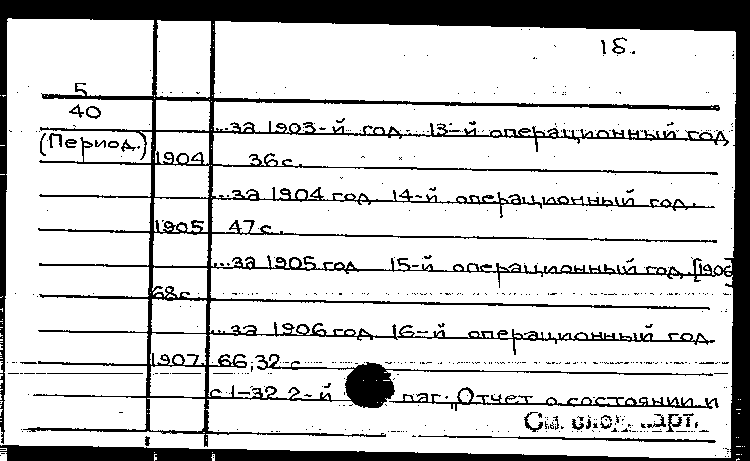 18.
5
40
(Период.)
...за 1903-й год. 13-й операционный год
1904 36 с.
...за 1904 год. 14-й операционный год.
1905 47 с.
...за 1905 год 15-й операционный год, [1906]
68 с.
...за 1906 год 16-й операционный год.
1907 66,32 с
с 1-32 2-й паг. "Отчет о состоянии и
См. след. карт.